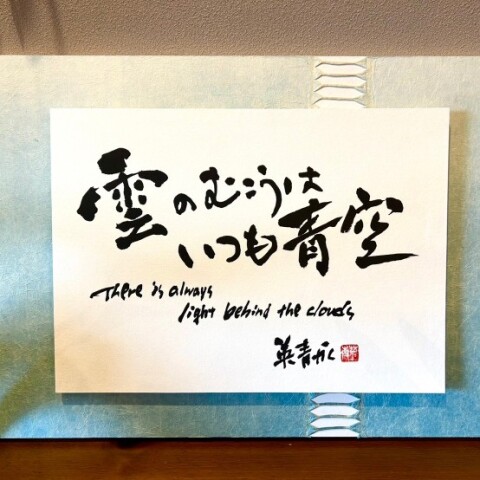 雲のむこうは
いつも青空
There is always
light behind the clouds
英青